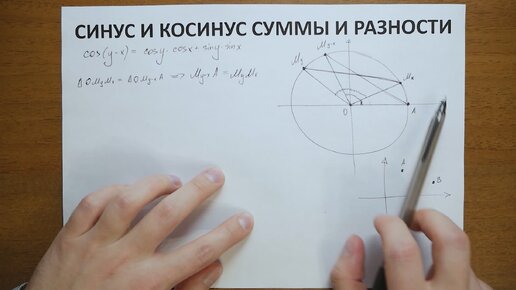 СИНУС И КОСИНУС СУММЫ И РАЗНОСТИ
cos(y-x) = cosy·cosx + siny·sinx
ΔOMyMx = ΔOMy-xA => My-xA = MyMx
My-x
My
Mx
O
A
A
B